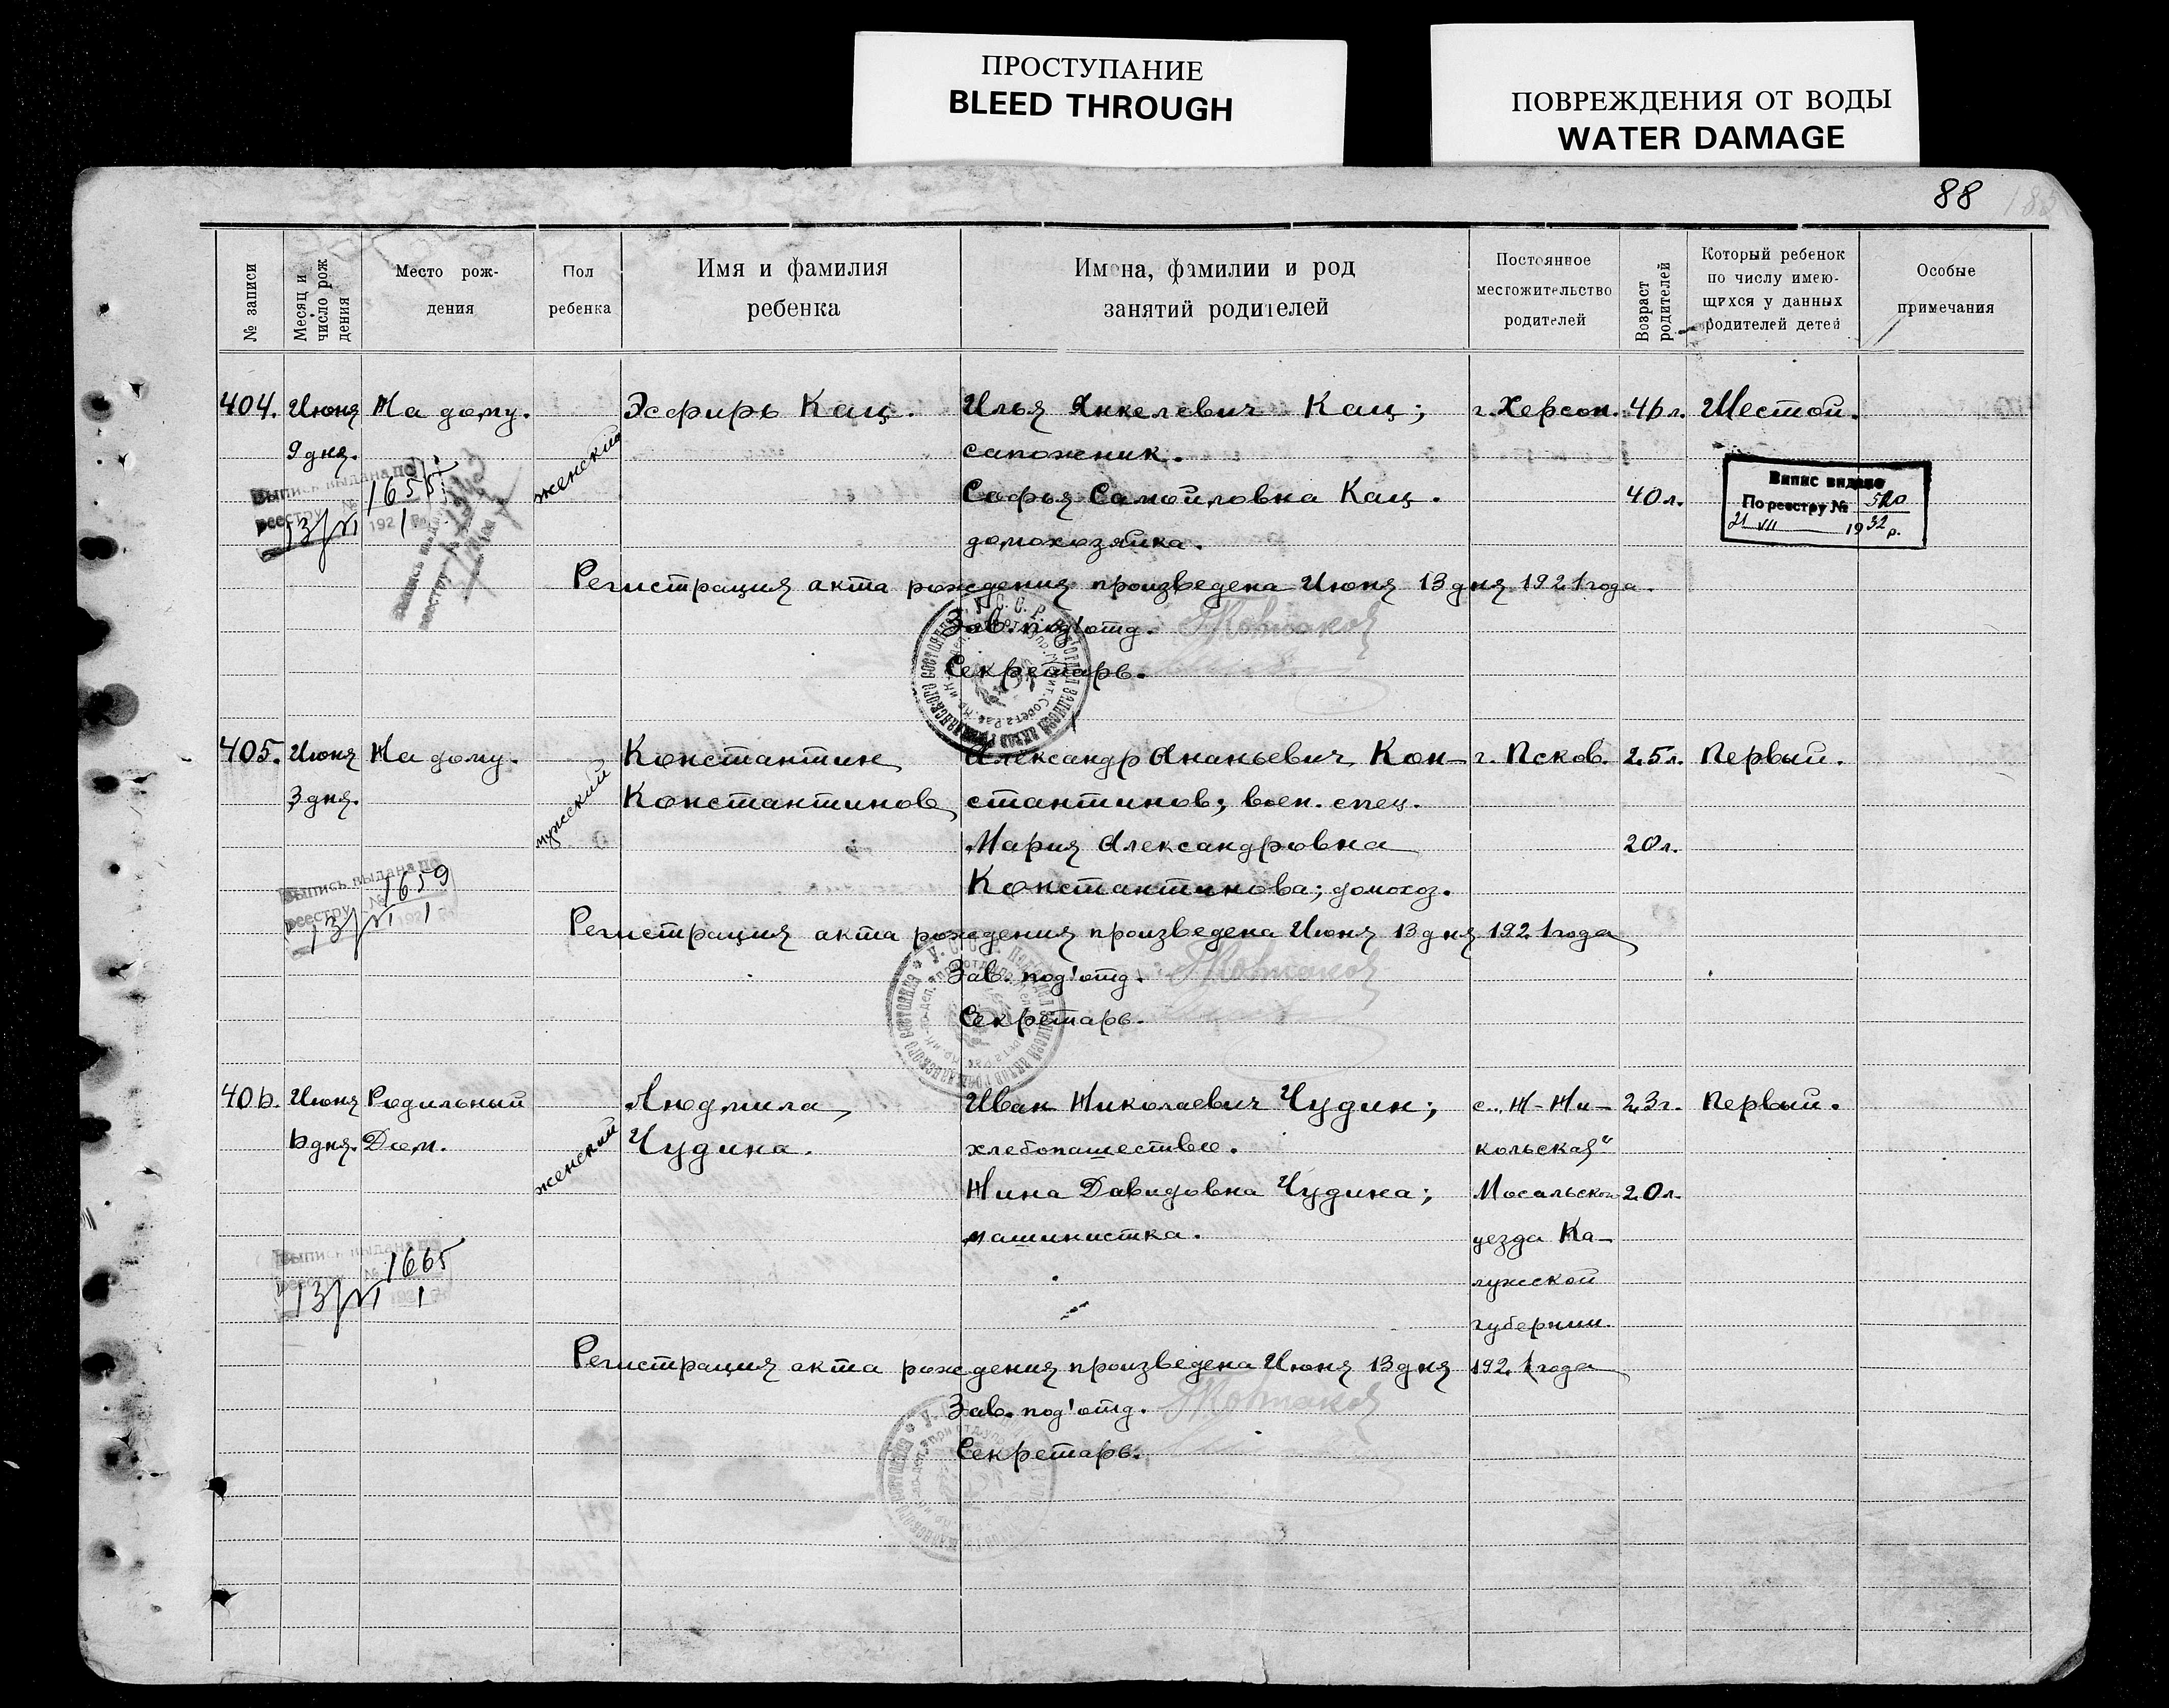 ПРОСТУПАНИЕ
BLEED THROUGH
ПОВРЕЖДЕНИЯ ОТ ВОДЫ
WATER DAMAGE
88
№ записи
Месяц и
число рож
дения
Место рож-
дения
Пол
ребенка
Имя и фамилия
ребенка
Имена, фамилии и род
занятий родителей
Постоянное
местожительство
родителей
Возраст
родителей
Который ребенок
по числу имею-
щихся у данных
родителей детей
Особые
примечания
404. Июня На дому. женский Эсфирь Кац. Илья Янкелевич Кац; г. Херсон. 46 л. Шестой.
9 дня. сапожник.
Софья Самойловна Кац. 40 л.
домохозяйка.
Выпись выдана по
реестру № 1655
13/VI 192 1
Випис видано
По реестру № 520
21 VII 1932 р.
Регистрация акта рождения произведена Июня 13 дня 1921 года.
Зав. под'отд.
Секретарь.
405. Июня На дому. мужской Константин Александр Ананьевич Кон- г. Псков. 25 л. Первый.
3 дня. Константинов стантинов; воен. спец.
Мария Александровна 20 л.
Константинова; домохоз.
Выпись выдана по
реестру № 1659
13/VI 192 1
Регистрация акта рождения произведена Июня 13 дня 1921 года
Зав. под'отд.
Секретарь.
406. Июня Родильный женский Людмила Иван Николаевич Чудин; с. „Н-Ни- 23 г. Первый.
6 дня. Дом. Чудина. хлебопашество. кольская“
Нина Давидовна Чудина; Мосальского 20 л.
машинистка. уезда Ка-
лужской
губернии.
Выпись выдана по
реестру № 1665
13/VI 192 1
Регистрация акта рождения произведена Июня 13 дня 1921 года
Зав. под'отд.
Секретарь.